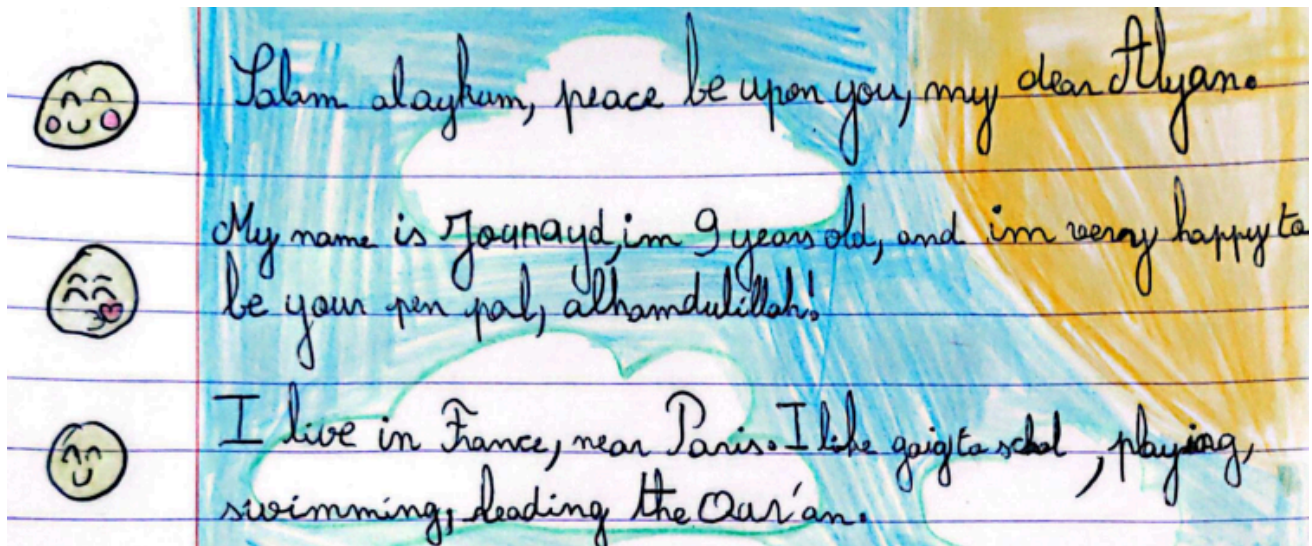 Salam alaykum, peace be upon you, my dear Alyan.
My name is Jounayd, im 9 years old, and im very happy to
be your pen pal, alhamdulillah!
I live in France, near Paris. I like goig to schol, playing,
swimming, leading the Qur'an.